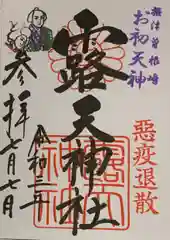 摂津曽根崎
お初天神
悪疫退散
露天神社
令和三年
七月七日
参拝